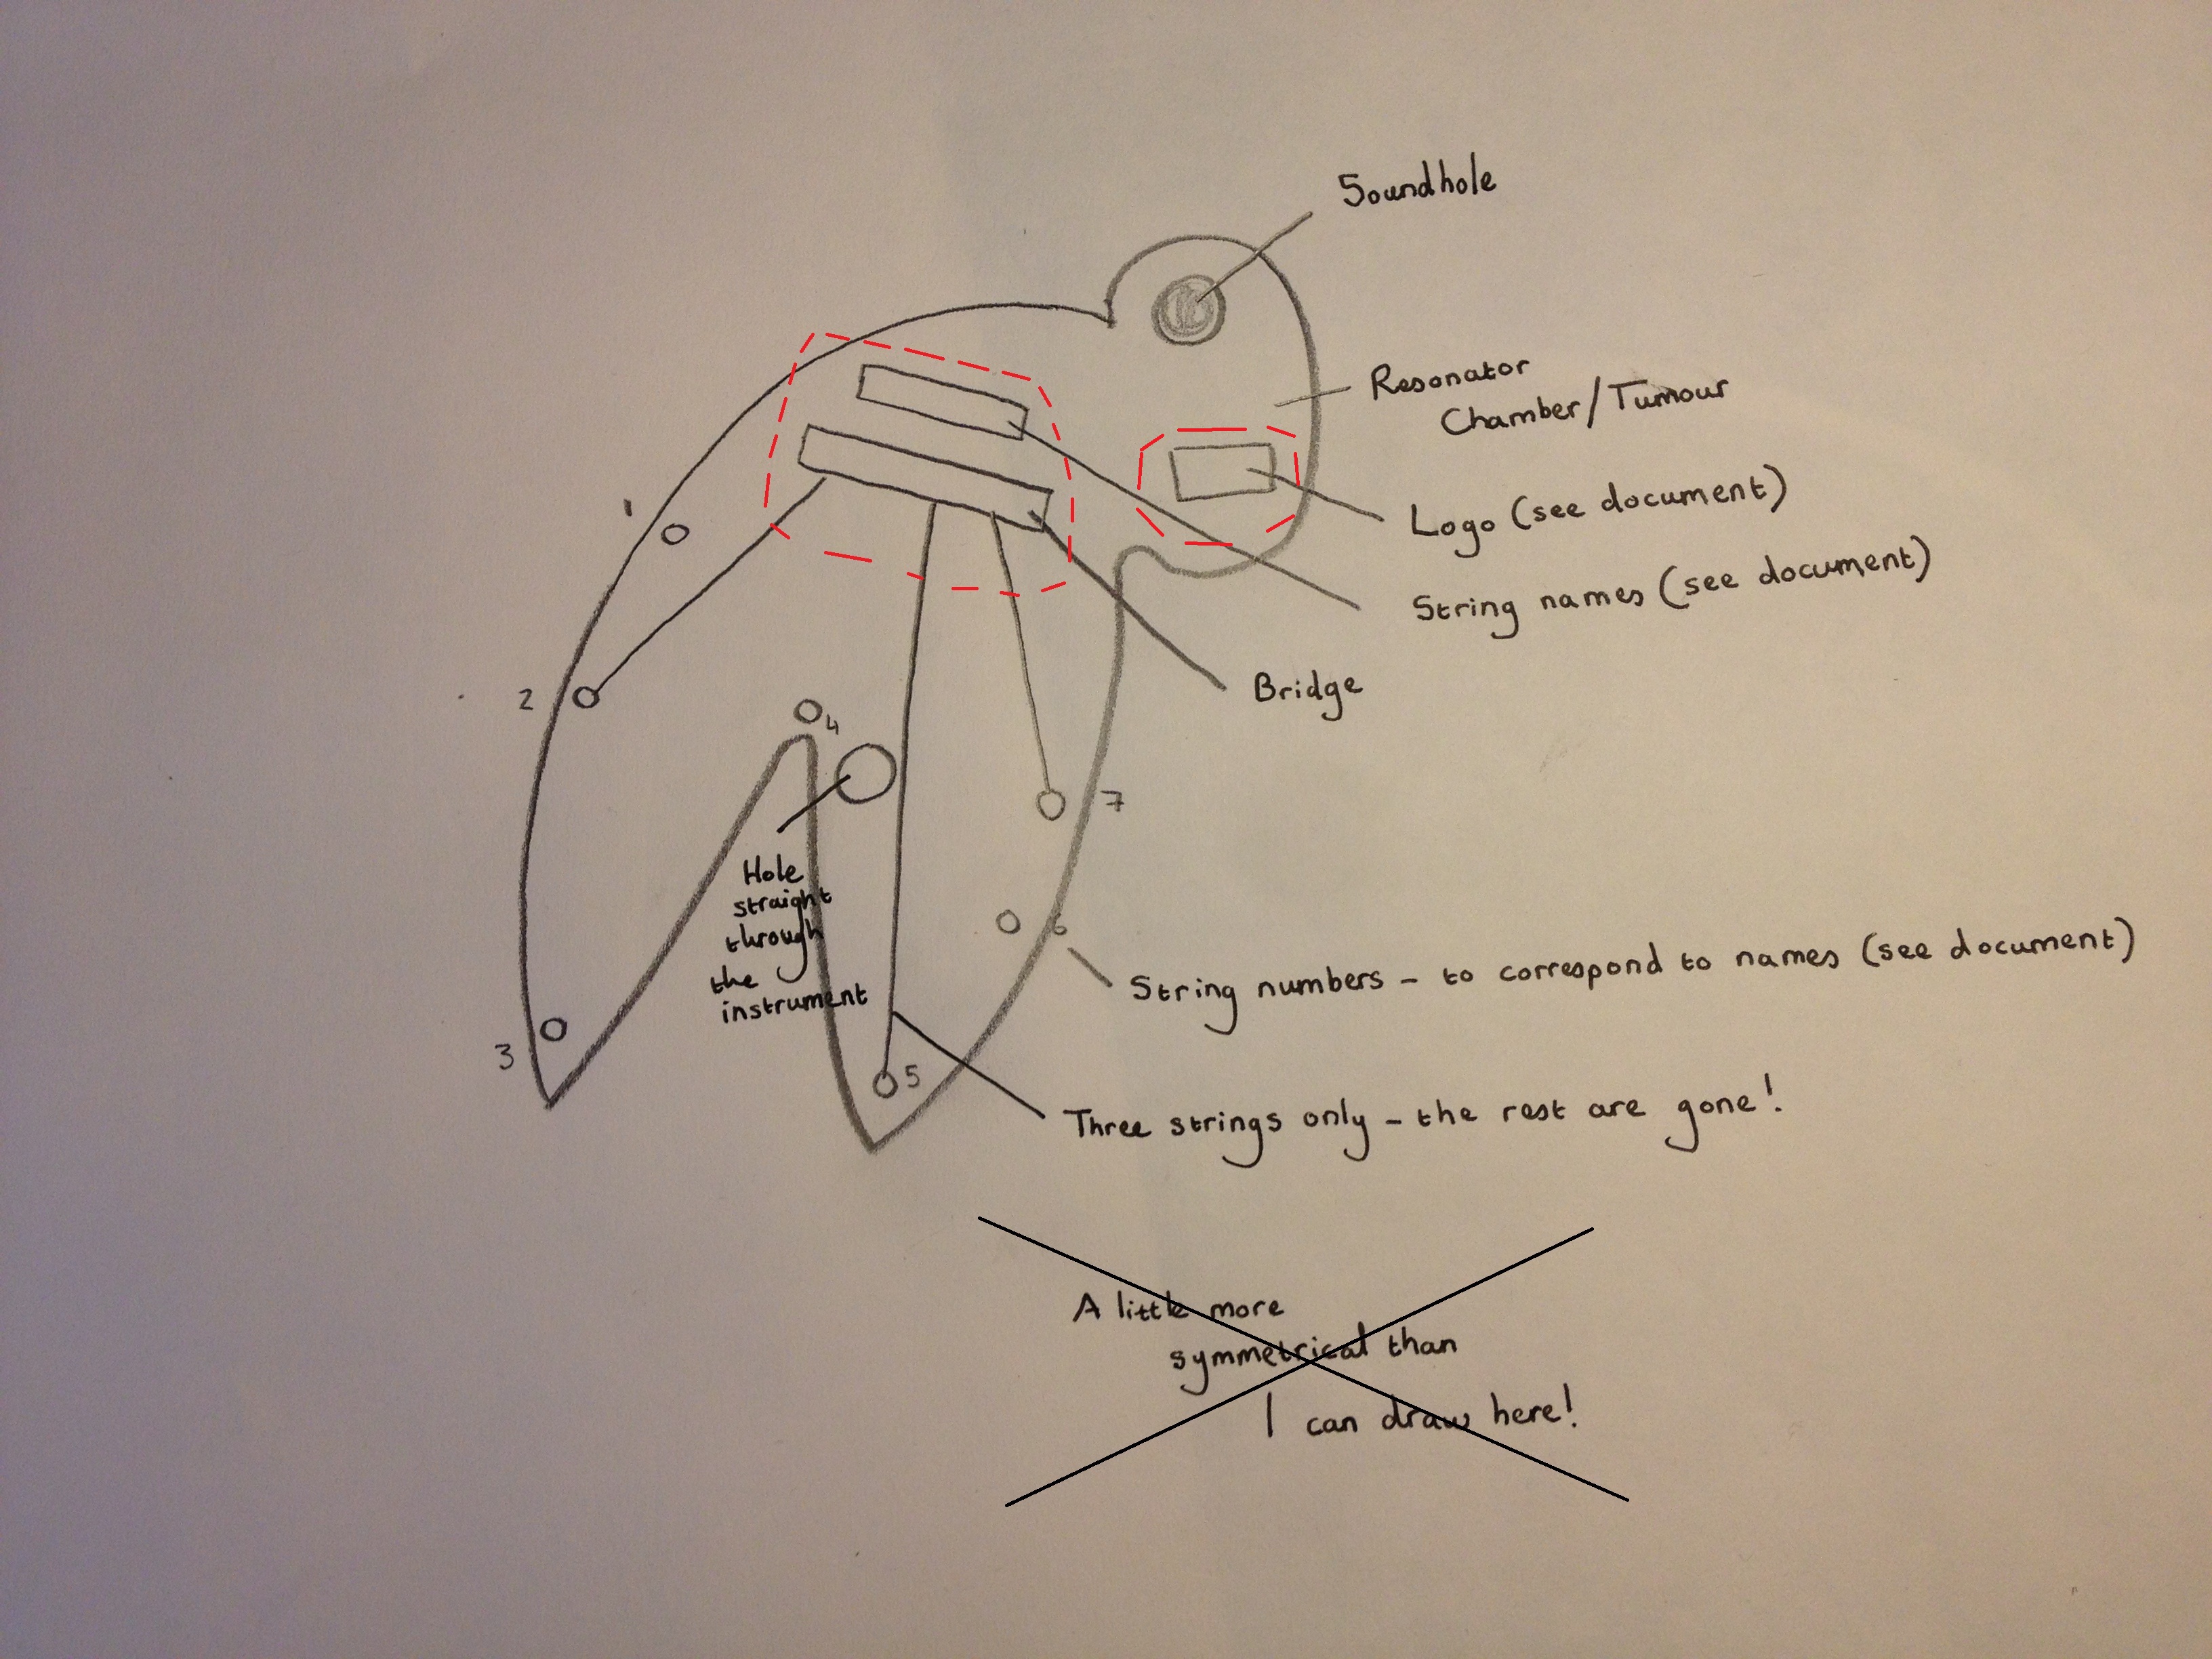 Soundhole
Resonator
Chamber/Tumour
Logo (see document)
String names (see document)
Bridge
1
2
4
7
Hole
straight
through
the
instrument
6
String numbers - to correspond to names (see document)
3
5
Three strings only - the rest are gone!
A little more
symmetrical than
I can draw here!